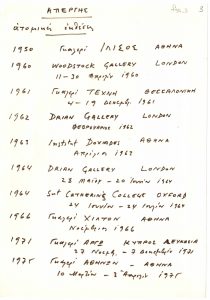 ΑΠΕΡΓΗΣ
ἀτομικὲς ἐκθέσεις
1950 Γκαλερί ΙΛΙΣΟΣ ΑΘΗΝΑ
1960 WOODSTOCK GALLERY LONDON
11-30 1960
1961 Γκαλερί ΤΕΧΝΗ ΘΕΣΣΑΛΟΝΙΚΗ
4 - 19 Δεκεμβρ. 1961
1962 DRIAN GALLERY LONDON
1962
1963 Institut ΑΘΗΝΑ
Απρίλιο 1963
1964 DRIAN GALLERY LONDON
23 Μαΐου - 20 Ιουνίου 1964
1964 St CATHERINS COLLEGE OXFORD
24 Ιουνίου - 24 1964
1966 Γκαλερί ΧΙΛΤΟΝ ΑΘΗΝΑ
1966
1971 Γκαλερί ΑΡΓΩ ΚΥΠΡΟΣ ΛΕΥΚΩΣΙΑ
27 Νοεμβρ. - 7 Δεκεμβρίου 1971
1975 Γκαλερί ΑΘΗΝΩΝ - ΑΘΗΝΑ
10 Μαρτίου - 2 Απριλίου 1975